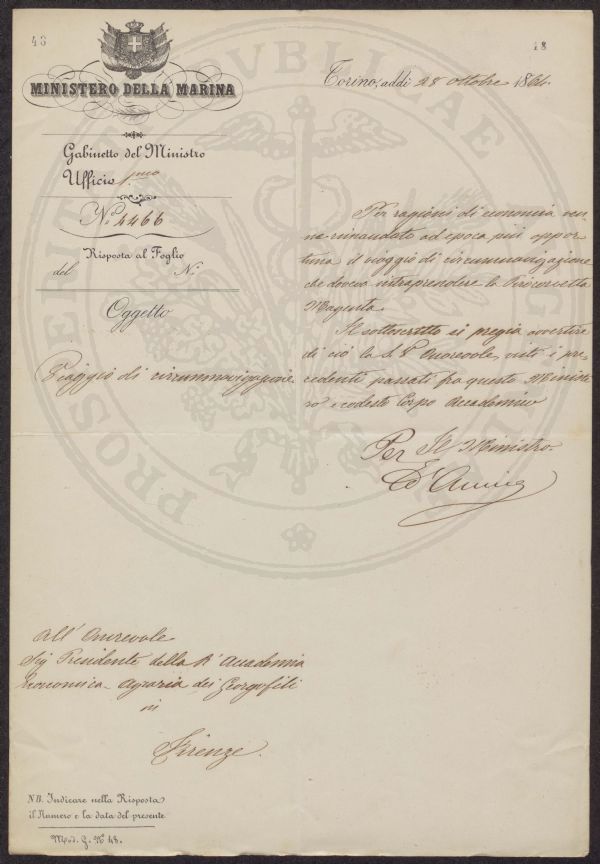 43
18
MINISTERO DELLA MARINA
Torino, addì 28 ottobre 1864.
Gabinetto del Ministro
Ufficio pmo
N.º 4466
Risposta al Foglio
del N.º
Oggetto
Viaggio di circumnavigazione
Per ragioni di economia ven-
ne rimandato ad epoca più oppor
tuna il viaggio di circumnavigazione
che doveva intraprendere la Pirocorvetta
Magenta.
Il sottoscritto si pregia avvertire
di ciò la S. V. Onorevole, visti i pre
cedenti passati fra questo Ministe
ro e codesto Corpo Accademico
Per Il Ministro.
All' Onorevole
Sig Presidente della R. Accademia
Economica-Agraria dei Georgofili
in
Firenze.
NB. Indicare nella Risposta
il Numero e la data del presente
Mod. G. N.º 48.
PROSPERITATI PUBLICAE AUGENDAE